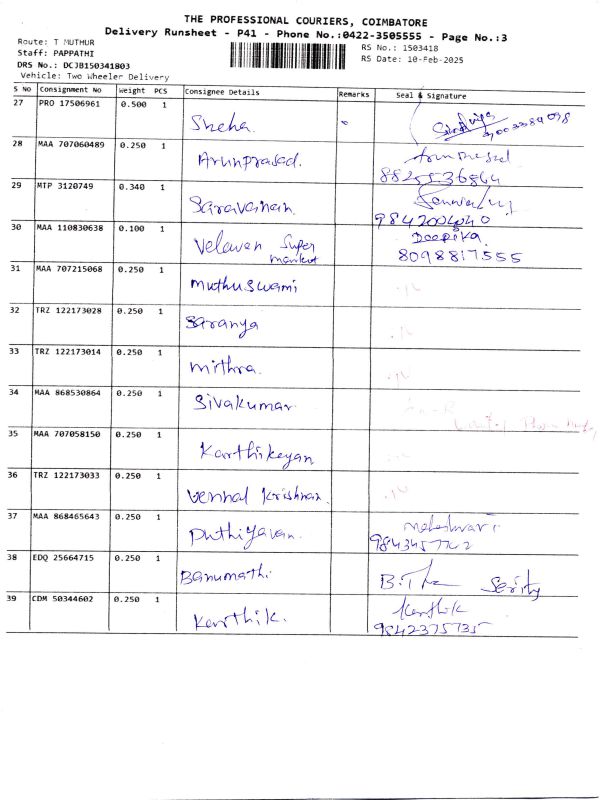 THE PROFESSIONAL COURIERS, COIMBATORE
Delivery Runsheet - P41 - Phone No.:0422-3505555 - Page No.:3
Route: T MUTHUR
RS No.: 1503418
Staff: PAPPATHI
RS Date: 10-Feb-2025
DRS No.: DCJB150341803
Vehicle: Two Wheeler Delivery
S No Consignment No Weight PCS Consignee Details Remarks Seal & Signature
27 PRO 17506961 0.500 1
Sneha.
28 MAA 707060489 0.250 1
Arunprasad.
8825536864
29 MTP 3120749 0.340 1
Saravanan.
9842004040
30 MAA 110830638 0.100 1 Deepika.
Velavan Super
market 8098817555
31 MAA 707215068 0.250 1
muthuswami
32 TRZ 122173028 0.250 1
Saranya
33 TRZ 122173014 0.250 1
mithra.
34 MAA 868530864 0.250 1
Sivakumar
35 MAA 707058150 0.250 1
Karthikeyan
36 TRZ 122173033 0.250 1
Vennal Krishnan.
37 MAA 868465643 0.250 1
Maheshwari
Puthiyavan.
38 EDQ 25664715 0.250 1
Banumathi
39 CDM 50344602 0.250 1 Karthik
Karthik. 9842375735